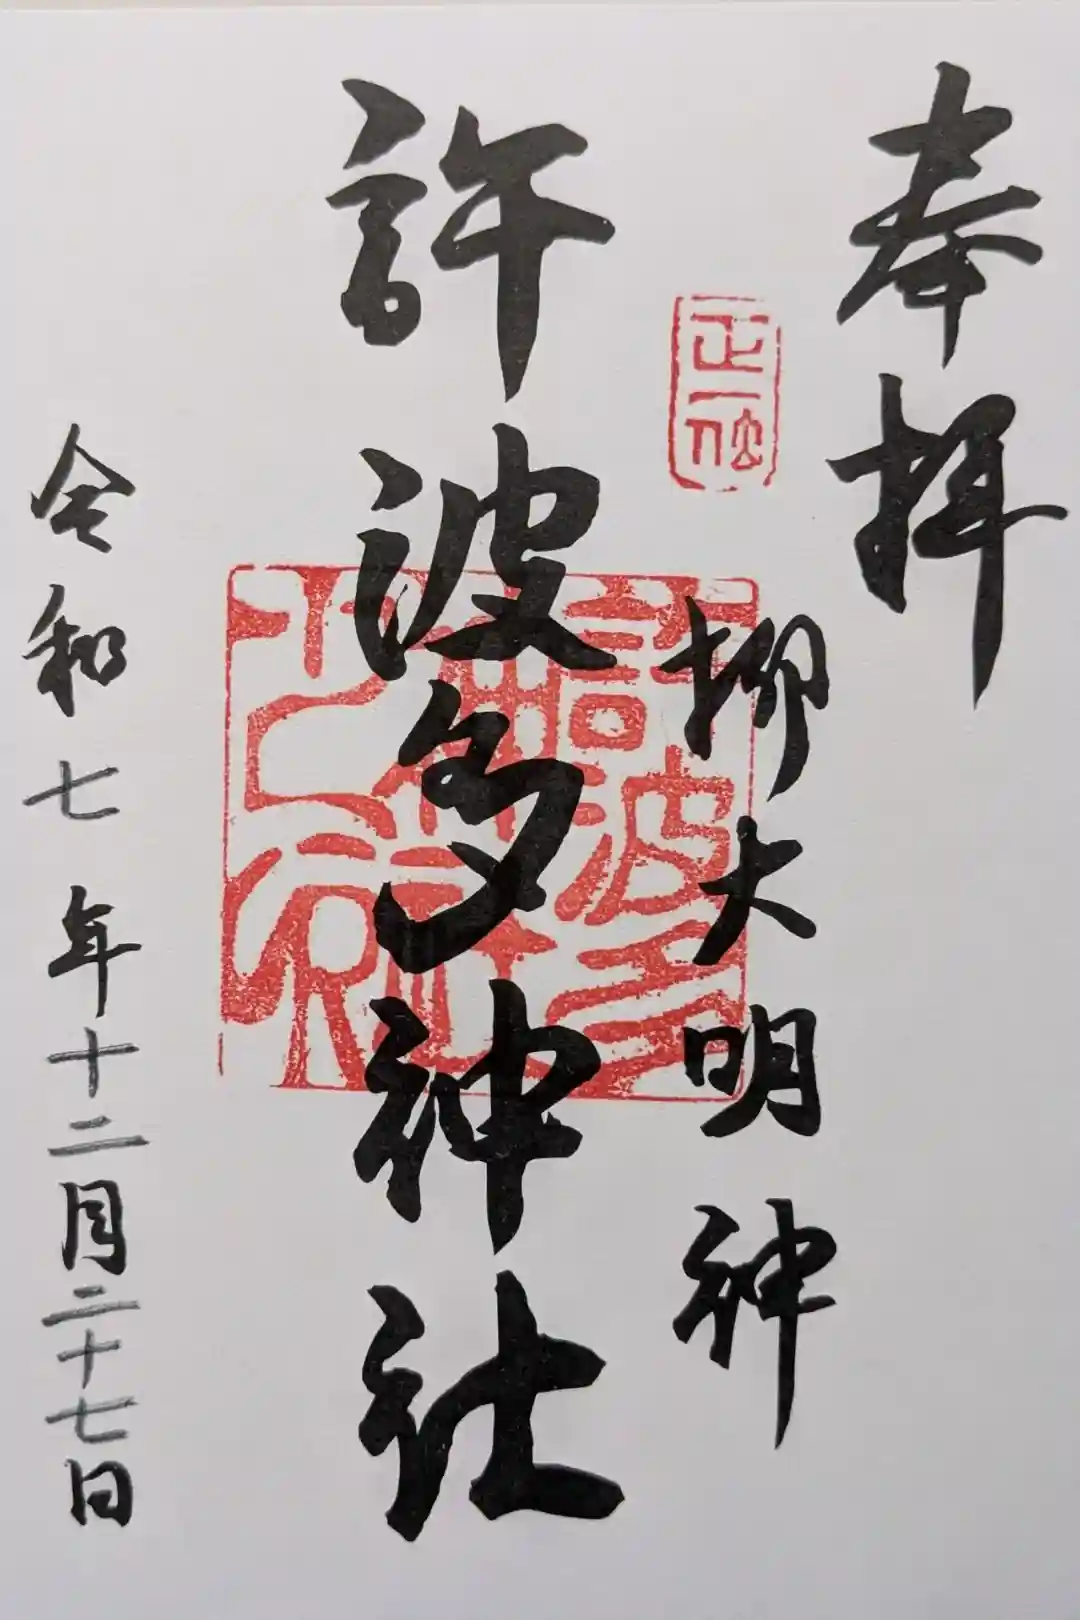 奉拝
正一位
柳大明神
許波多神社
令和七年十二月二十七日